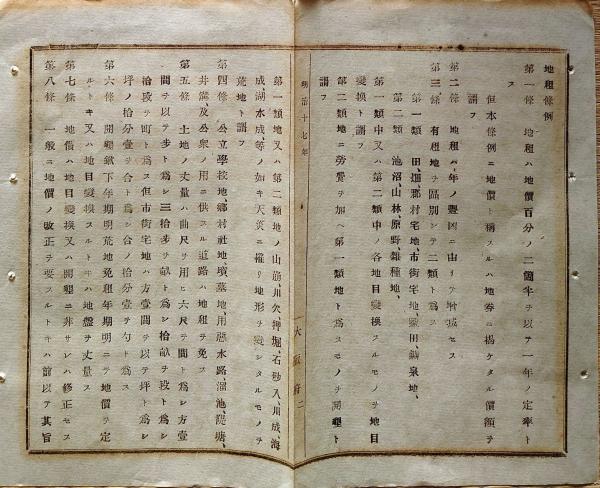 地租條例
第一條　地租ハ地價百分ノ二箇半ヲ以テ一年ノ定率ト
ス
但本條例ニ地價ト稱スルハ地券ニ掲ケタル價額ヲ
謂フ
第二條　地租ハ年ノ豐凶ニ由リテ增減セス
第三條　有租地ヲ區別シテ二類ト爲ス
第一類　田畑、郡村宅地、市街宅地、鹽田、鑛泉地、
第二類　池沼、山林、原野、雜種地、
第一類中又ハ第二類中ノ各地目變換スルモノヲ地目
變換ト謂フ
第二類地ニ勞費ヲ加ヘ第一類地ト爲スモノヲ開墾ト
謂フ
明治十七年
大阪府
二
第一類地又ハ第二類地ノ山崩、川欠、押堀、石砂入、川成、海
成、湖水成、等ノ如キ天災ニ罹リ地形ヲ變シタルモノヲ
荒地ト謂フ
第四條　公立學校地、鄕村社地、墳墓地、用惡水路、溜池、堤塘、
井溝及公衆ノ用ニ供スル道路ハ地租ヲ免ス
第五條　土地ノ丈量ハ曲尺ヲ用ヒ六尺ヲ間ト爲シ方壹
間ヲ以テ步ト爲シ三拾步ヲ畝ト爲シ拾畝ヲ段ト爲シ
拾段ヲ町ト爲ス但市街宅地ハ方壹間ヲ以テ坪ト爲シ
坪ノ拾分壹ヲ合ト爲シ合ノ拾分壹ヲ勺ト爲ス
第六條　開墾鍬下年期明荒地免租年期明ニテ地價ヲ定
ルトキ又ハ地目變換スルトキハ地盤ヲ丈量ス
第七條　地價ハ地目變換又ハ開墾ニ非サレハ修正セス
第八條　一般ニ地價ノ改正ヲ要スルトキハ前以テ其旨